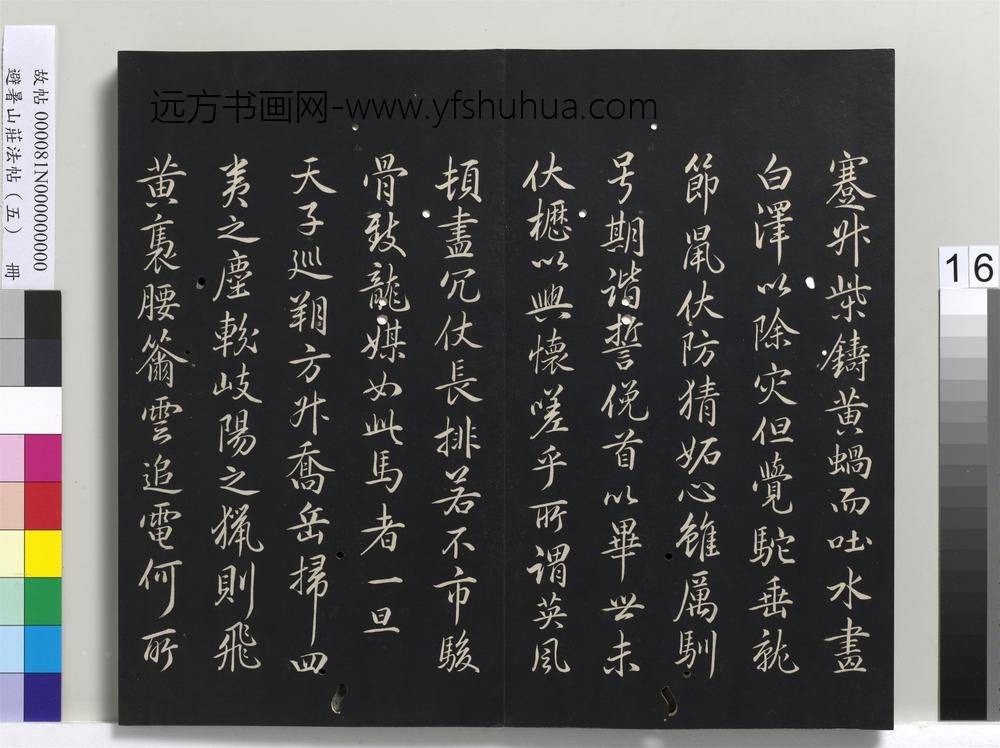 远方书画网-www.yfshuhua.com
故帖 000081N000000000
避暑山莊法帖（五） 冊
16
蹇升柴鑄黄蝸而吐水畫
白澤以除灾但覺駝垂就
節鼠伏防猜妬心雖厲馴
号期諧誓俛首以畢世未
伏櫪以興懷嗟乎所謂英風
頓盡冗仗長排若不市駿
骨致龍媒如此馬者一旦
天子巡朔方升喬岳掃四
夷之塵軼岐陽之獵則飛
黄裏腰籋雲追電何所